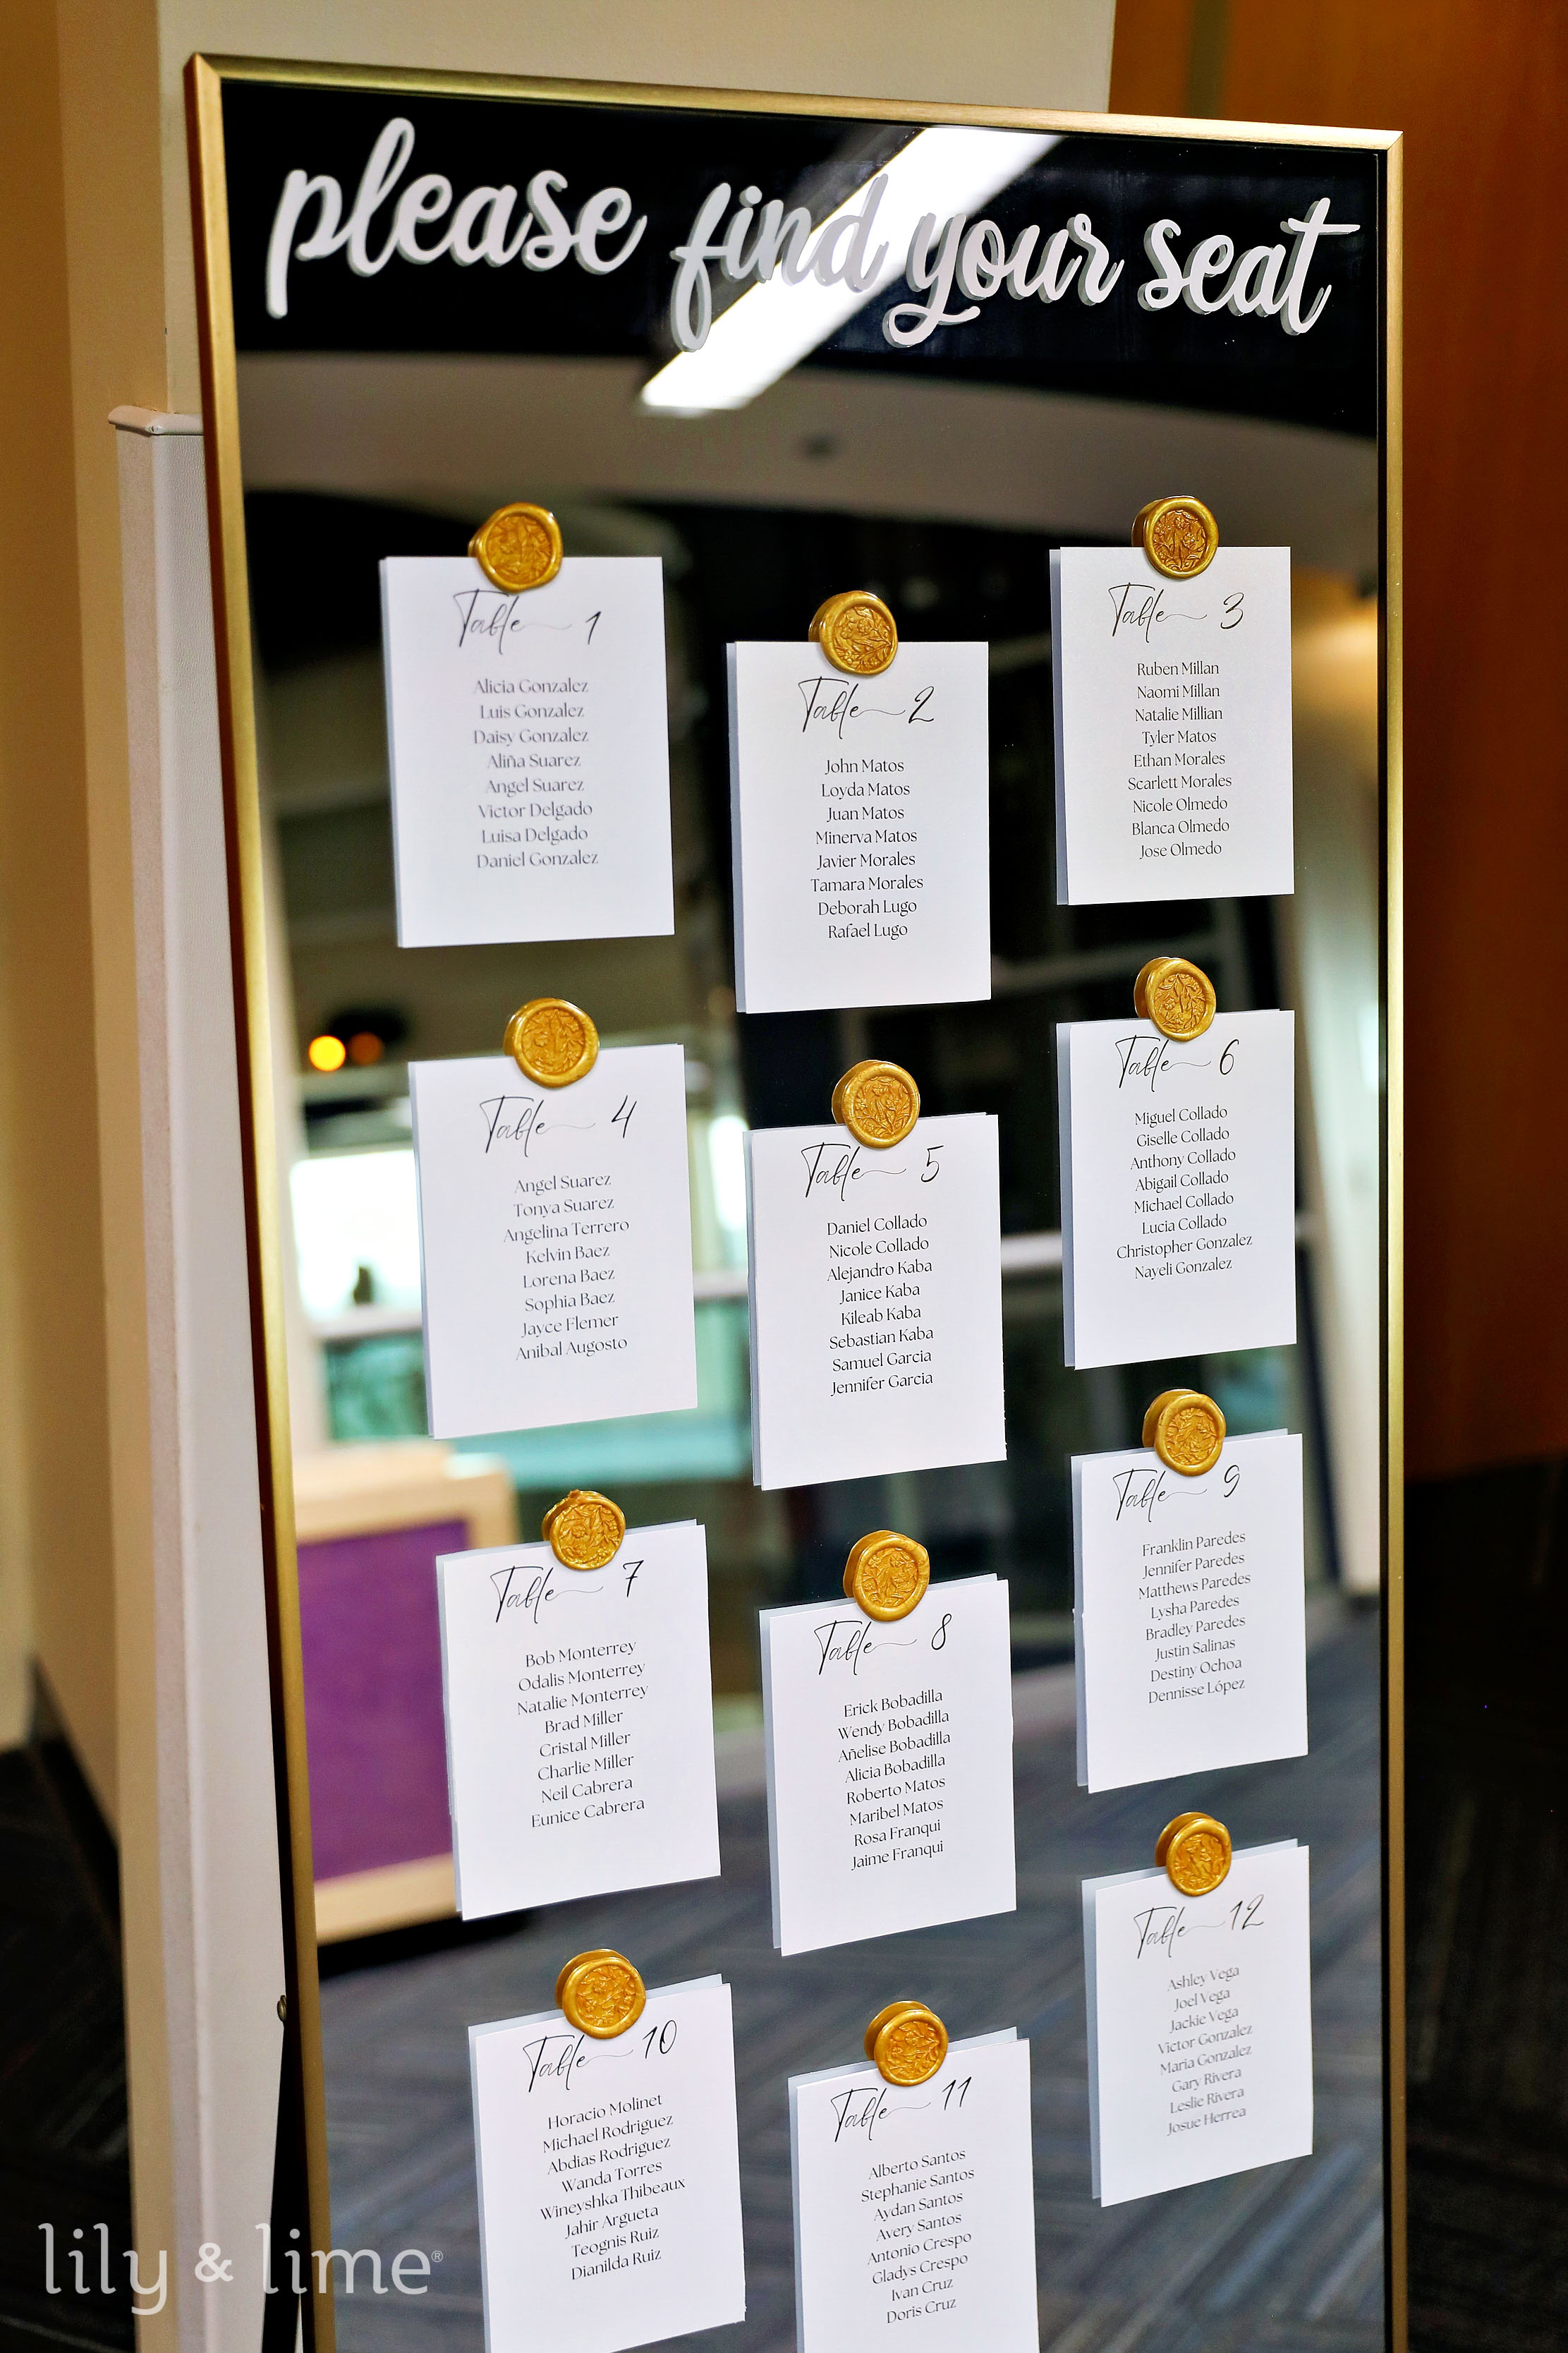 please find your seat
Table 1
Alicia Gonzalez
Luis Gonzalez
Daisy Gonzalez
Aliña Suarez
Angel Suarez
Victor Delgado
Luisa Delgado
Daniel Gonzalez
Table 2
John Matos
Loyda Matos
Juan Matos
Minerva Matos
Javier Morales
Tamara Morales
Deborah Lugo
Rafael Lugo
Table 3
Ruben Millan
Naomi Millan
Natalie Millian
Tyler Matos
Ethan Morales
Scarlett Morales
Nicole Olmedo
Blanca Olmedo
Jose Olmedo
Table 4
Angel Suarez
Tonya Suarez
Angelina Terrero
Kelvin Baez
Lorena Baez
Sophia Baez
Jayce Flemer
Anibal Augosto
Table 5
Daniel Collado
Nicole Collado
Alejandro Kaba
Janice Kaba
Kileab Kaba
Sebastian Kaba
Samuel Garcia
Jennifer Garcia
Table 6
Miguel Collado
Giselle Collado
Anthony Collado
Abigail Collado
Michael Collado
Lucia Collado
Christopher Gonzalez
Nayeli Gonzalez
Table 7
Bob Monterrey
Odalis Monterrey
Natalie Monterrey
Brad Miller
Cristal Miller
Charlie Miller
Neil Cabrera
Eunice Cabrera
Table 8
Erick Bobadilla
Wendy Bobadilla
Añelise Bobadilla
Alicia Bobadilla
Roberto Matos
Maribel Matos
Rosa Franqui
Jaime Franqui
Table 9
Franklin Paredes
Jennifer Paredes
Matthews Paredes
Lysha Paredes
Bradley Paredes
Justin Salinas
Destiny Ochoa
Dennisse López
Table 10
Horacio Molinet
Michael Rodriguez
Abdias Rodriguez
Wanda Torres
Wineyshka Thibeaux
Jahir Argueta
Teognis Ruiz
Dianilda Ruiz
Table 11
Alberto Santos
Stephanie Santos
Aydan Santos
Avery Santos
Antonio Crespo
Gladys Crespo
Ivan Cruz
Doris Cruz
Table 12
Ashley Vega
Joel Vega
Jackie Vega
Victor Gonzalez
Maria Gonzalez
Gary Rivera
Leslie Rivera
Josue Herrea
lily & lime®